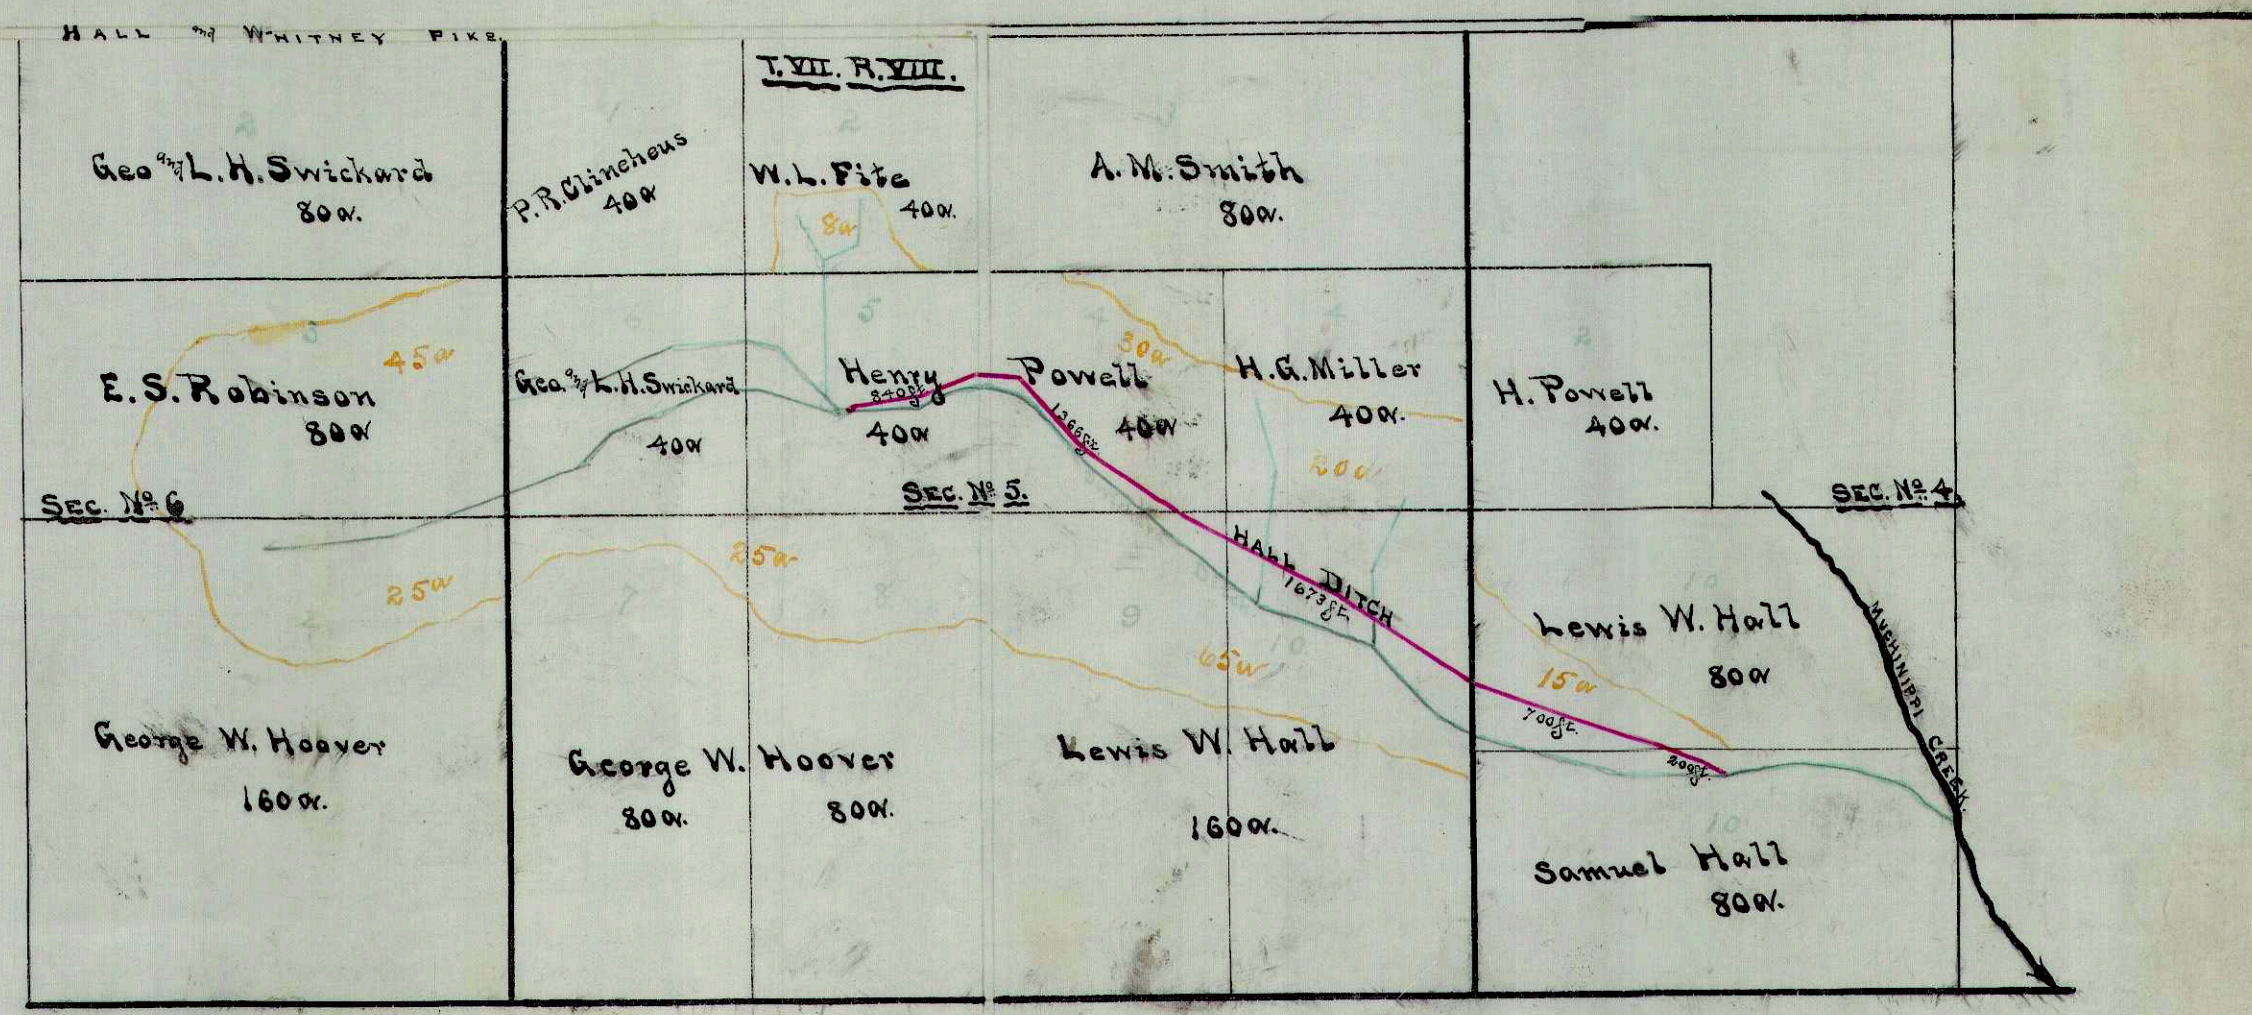 HALL and WHITNEY PIKE.
T. VII. R. VIII.
2
1
2
3
Geo and L. H. Swickard
80a.
P. R. Clinehens
40a
W. L. Fite
40a.
8a
A. M. Smith
80a.
3
45a
E. S. Robinson
80a
6
Geo. and L. H. Swickard
40a
5
Henry Powell
840ft
40a
4
30a
1366ft
40a
4
H. G. Miller
40a.
20a
2
H. Powell
40a.
SEC. No 6
SEC. No 5.
SEC. No 4.
25a
4
25a
7
8
9
10
HALL DITCH
1673ft.
65a
10
Lewis W. Hall
80a
15a
700ft.
200ft.
MUCHINIPPI CREEK.
George W. Hoover
160a.
George W. Hoover
80a.
80a.
Lewis W. Hall
160a.
10
Samuel Hall
80a.